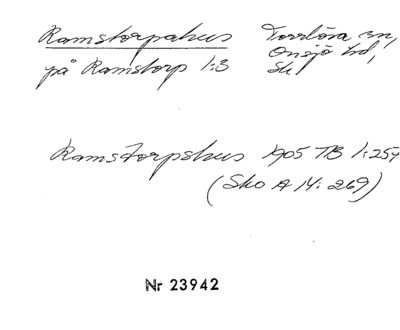 Ramstorpahus Torrlösa sn,
på Ramstorp 1:3 Onsjö hd,
Sk
Ramstorpshus 1905 TB 1:254
(Sko A 14: 269)
Nr 23942